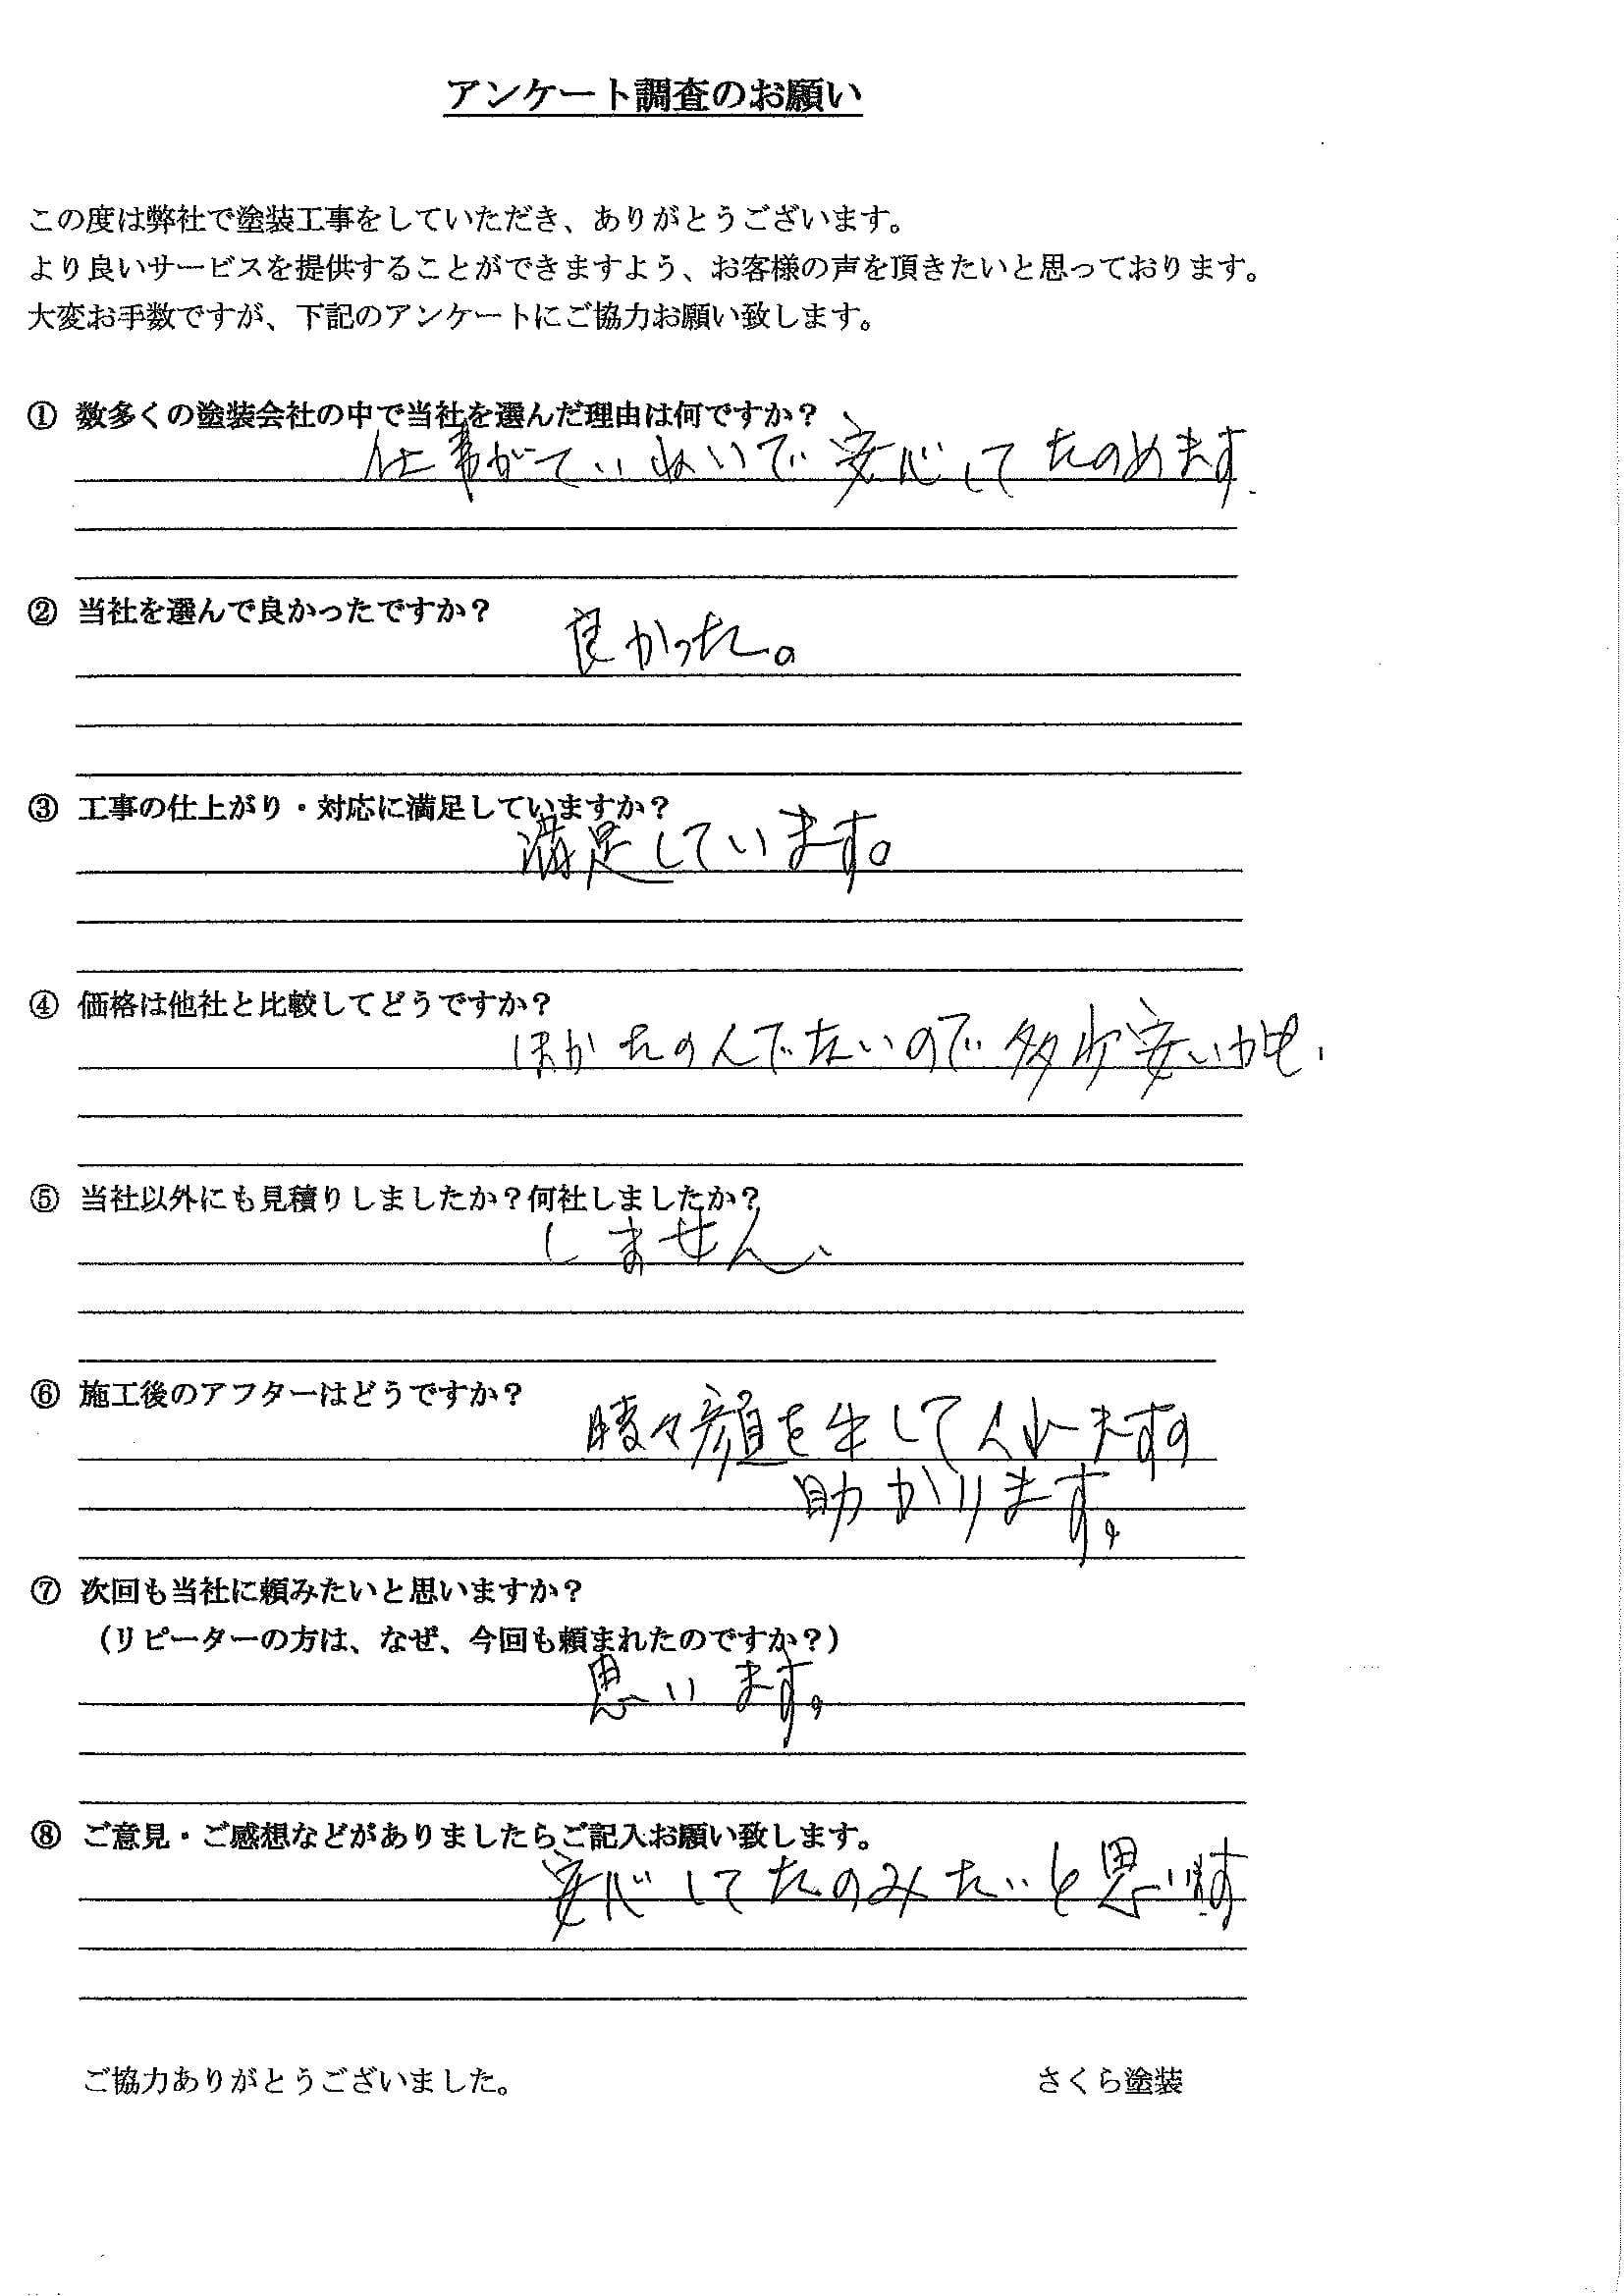 アンケート調査のお願い
この度は弊社で塗装工事をしていただき、ありがとうございます。
より良いサービスを提供することができますよう、お客様の声を頂きたいと思っております。
大変お手数ですが、下記のアンケートにご協力お願い致します。
① 数多くの塗装会社の中で当社を選んだ理由は何ですか？
仕事がていねいで安心してたのめます
② 当社を選んで良かったですか？
良かった。
③ 工事の仕上がり・対応に満足していますか？
満足しています。
④ 価格は他社と比較してどうですか？
ほかたのんでないので多少安いかも、
⑤ 当社以外にも見積りしましたか？何社しましたか？
しません、
⑥ 施工後のアフターはどうですか？
時々顔を出してくれますの
助かります。
⑦ 次回も当社に頼みたいと思いますか？
（リピーターの方は、なぜ、今回も頼まれたのですか？）
思います。
⑧ ご意見・ご感想などがありましたらご記入お願い致します。
安心してたのみたいと思います
ご協力ありがとうございました。 さくら塗装